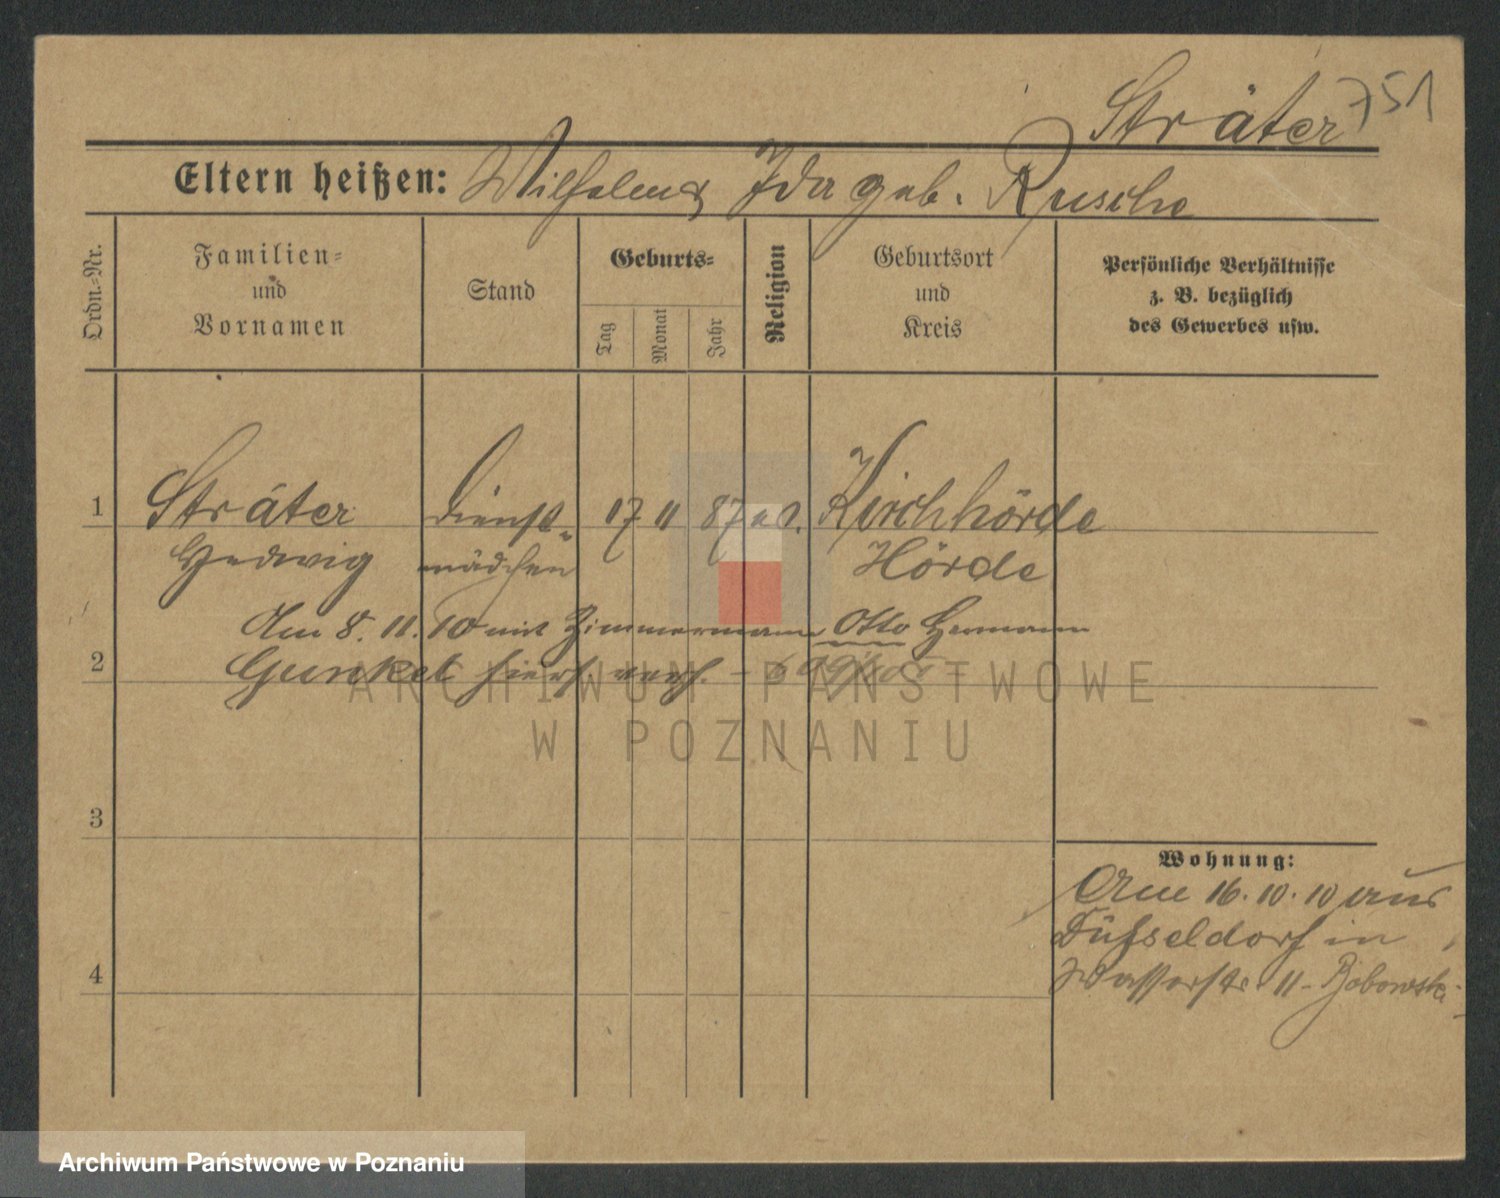 Sträter 751
Eltern heißen: Wilhelm & Ida geb. Rusche
Ordn.-Nr.
Familien-
und
Vornamen
Stand
Geburts-
Tag
Monat
Jahr
Religion
Geburtsort
und
Kreis
Persönliche Verhältnisse
z. B. bezüglich
des Gewerbes usw.
1 Sträter Dienst- 17 11 87 Kirchhörde
Hedwig mädchen Hörde
Am 8. 11. 10 mit Zimmermann Otto Hermann
2 Gunkel hier verh.
ARCHIWUM PAŃSTWOWE
W POZNANIU
3
Wohnung:
Am 16. 10. 10 aus
Düsseldorf in
4 Wasserstr. 11 - Bobowski
Archiwum Państwowe w Poznaniu